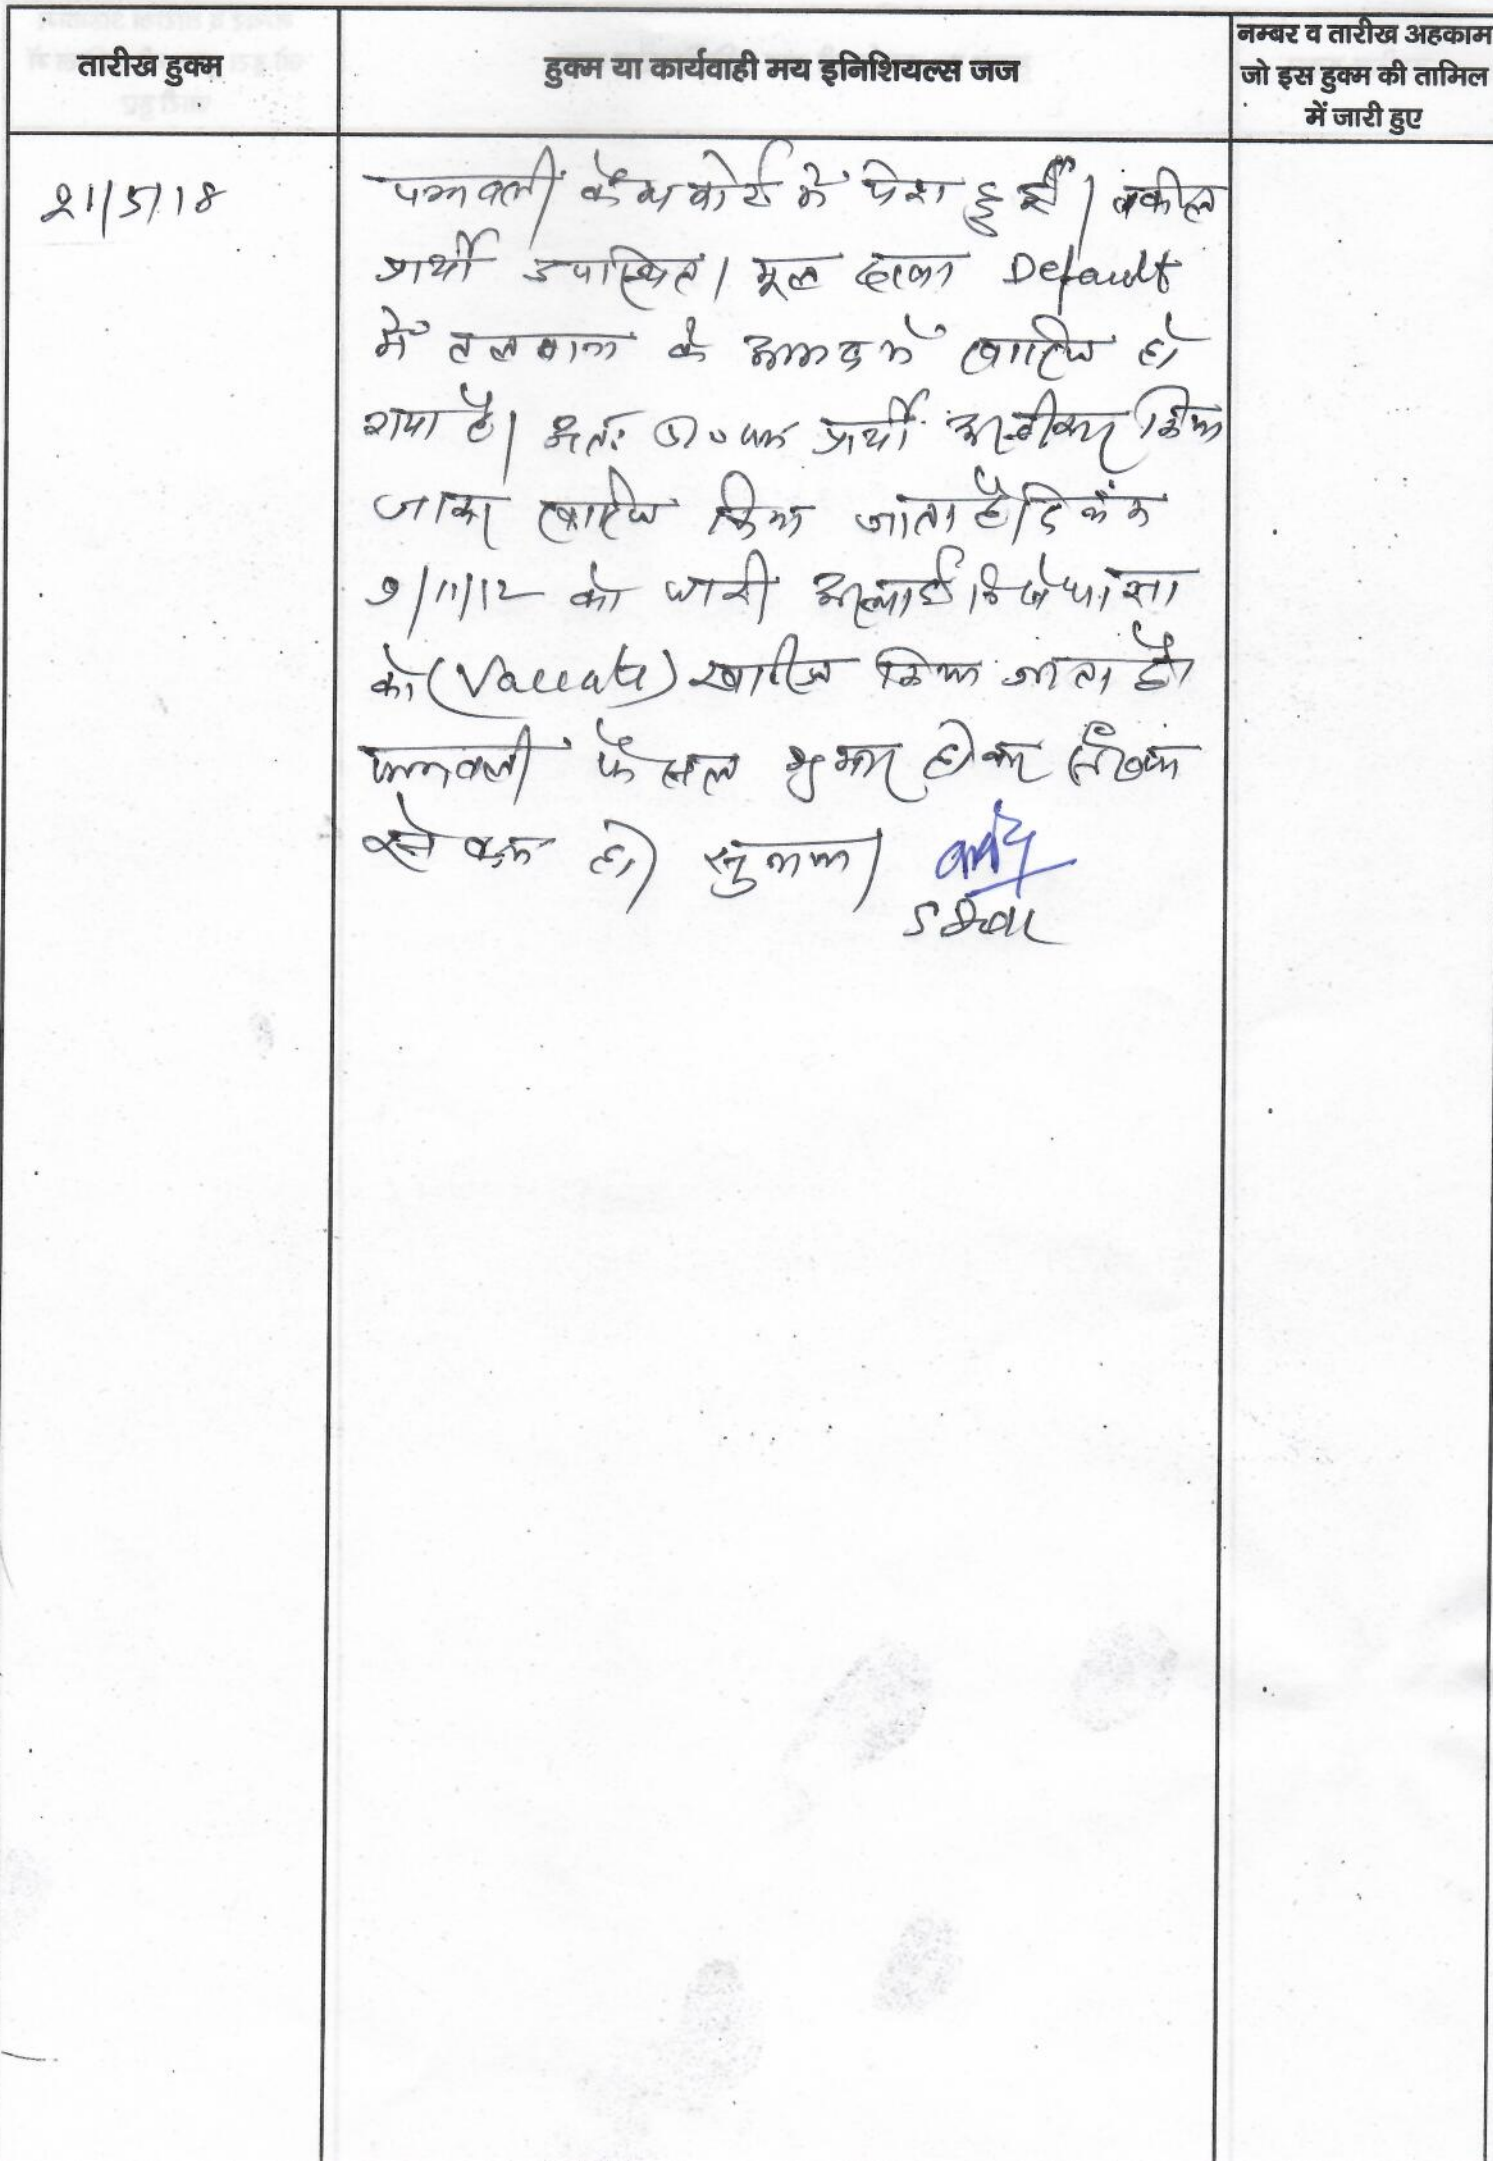 तारीख हुक्म
हुक्म या कार्यवाही मय इनिशियल्स जज
नम्बर व तारीख अहकाम
जो इस हुक्म की तामिल
में जारी हुए
21/5/18
पत्रावली कैम्प कोर्ट में पेश हुई। वकील
प्रार्थी उपस्थित। मूल दावा Default
में तलबाना के अभाव में खारिज हो
गया है। अतः प्रा० पत्र प्रार्थी अस्वीकार किया
जाकर खारिज किया जाता है। दिनांक
9/11/12 को जारी अस्थाई निषेधाज्ञा
को (Vaccate) खारिज किया जाता है।
पत्रावली फैसल शुमार होकर
हो। सुनाया।